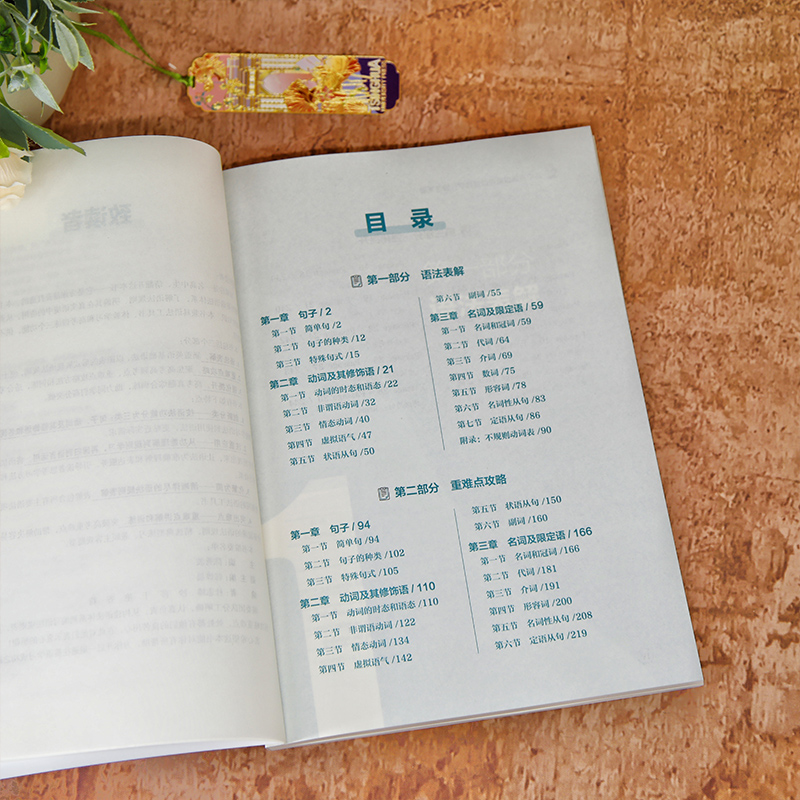 TSINGHUA
致读者
目 录
第一部分 语法表解
第一章 句子 / 2
第一节 简单句 /2
第二节 句子的种类 /12
第三节 特殊句式 /15
第二章 动词及其修饰语 / 21
第一节 动词的时态和语态 /22
第二节 非谓语动词 /32
第三节 情态动词 /40
第四节 虚拟语气 /47
第五节 状语从句 /50
第六节 副词 /55
第三章 名词及限定语 / 59
第一节 名词和冠词 /59
第二节 代词 /64
第三节 介词 /69
第四节 数词 /75
第五节 形容词 /78
第六节 名词性从句 /83
第七节 定语从句 /86
附录：不规则动词表 /90
第二部分 重难点攻略
第一章 句子 / 94
第一节 简单句 /94
第二节 句子的种类 /102
第三节 特殊句式 /105
第二章 动词及其修饰语 / 110
第一节 动词的时态和语态 /110
第二节 非谓语动词 /122
第三节 情态动词 /134
第四节 虚拟语气 /142
第五节 状语从句 /150
第六节 副词 /160
第三章 名词及限定语 / 166
第一节 名词和冠词 /166
第二节 代词 /181
第三节 介词 /191
第四节 形容词 /200
第五节 名词性从句 /208
第六节 定语从句 /219